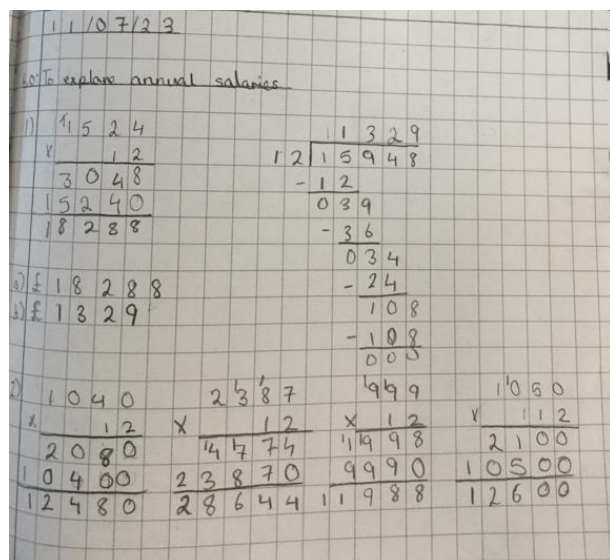 11/07/23
LO: To explore annual salaries
1) 1524
x 12
3048
15240
18288
11329
12 15948
- 12
039
- 36
034
- 24
108
- 108
000
a) £ 18288
b) £ 1329
2) 1040
x 12
2080
10400
12480
2387
x 12
4774
23870
28644
999
x 12
1998
9990
11988
1050
x 12
2100
10500
12600